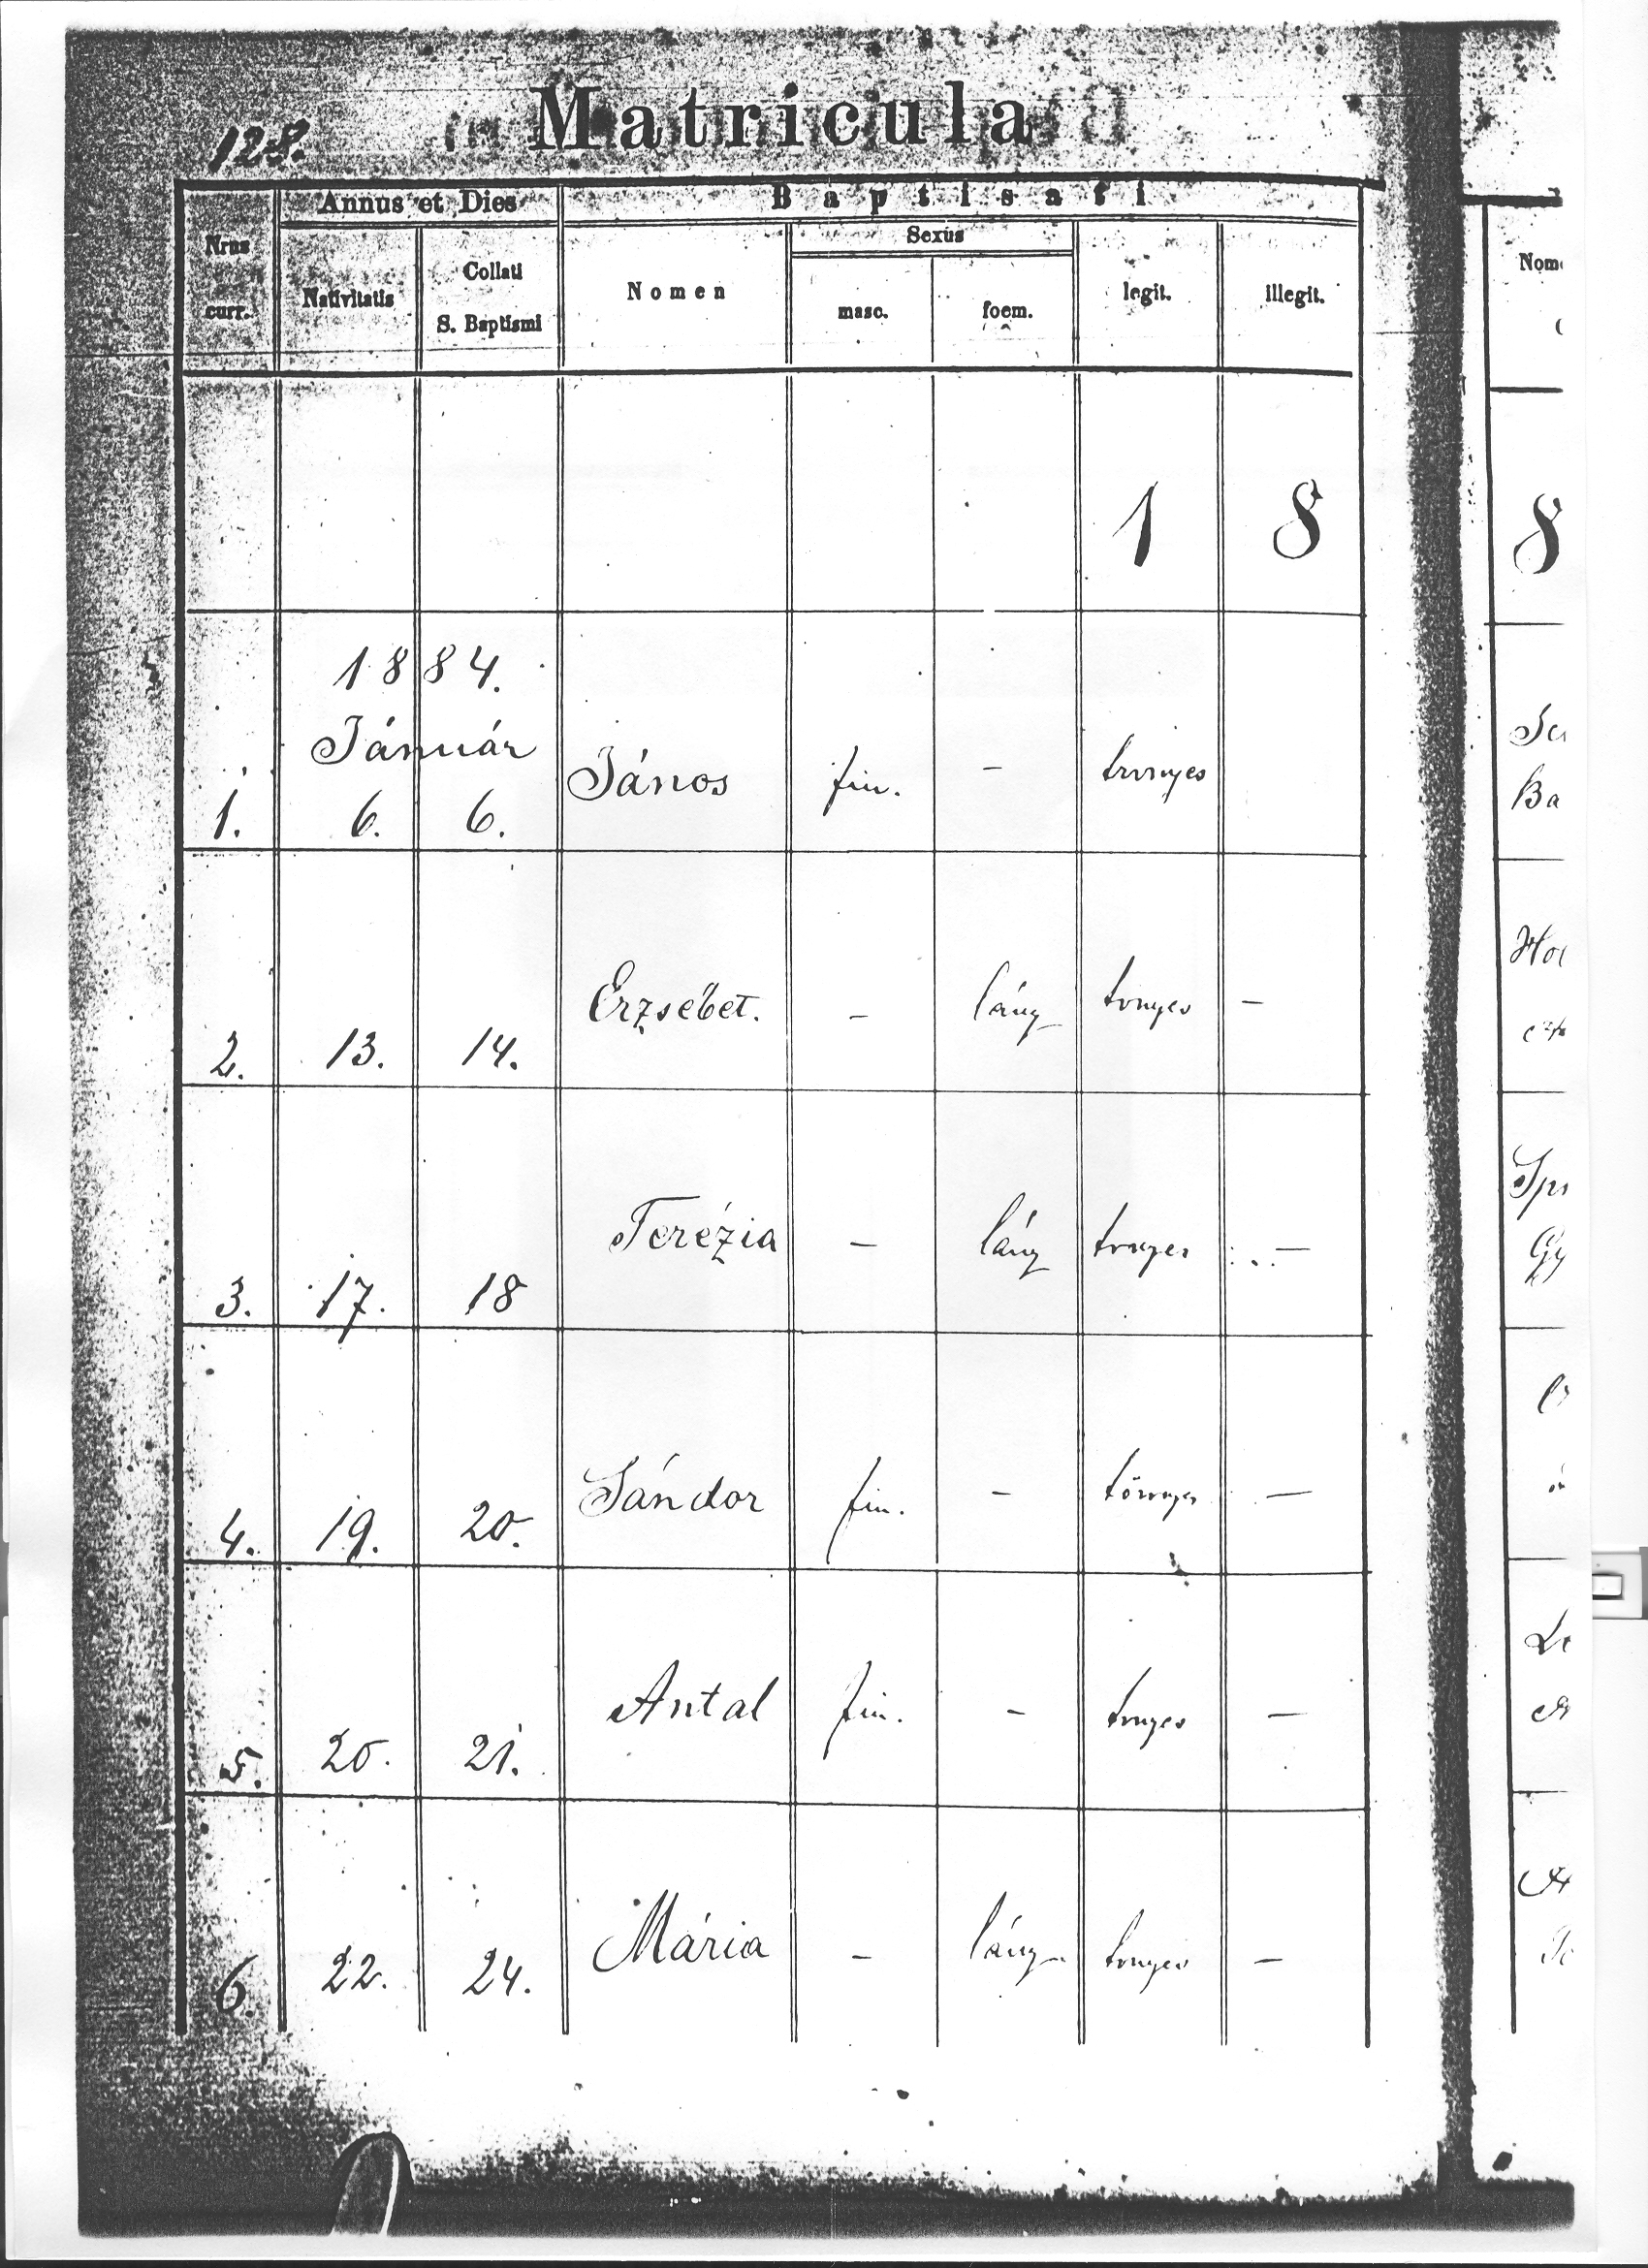 128.
Matricula
Annus et Dies
Baptisati
Nrus
curr.
Nativitatis
Collati
S. Baptismi
Nomen
Sexus
masc.
foem.
legit.
illegit.
1 8
1884.
Január
1. 6. 6. János fiu. -
2. 13. 14. Erzsébet. - lány tvnyes -
3. 17. 18 Terézia - lány tvnyes -
4. 19. 20. Sándor fiu. - törvnyes -
5. 20. 21. Antal fiu. - tvnyes -
6 22. 24. Mária - lány tvnyes -
Nom
8
Ba
Hor
Gy